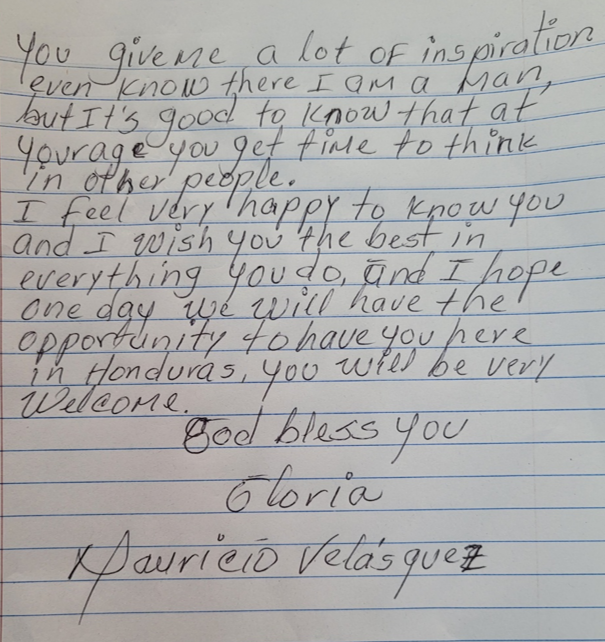 You give me a lot of inspiration
even know there I am a man,
but It's good to know that at
your age you get time to think
in other people.
I feel very happy to know you
and I wish you the best in
everything you do, and I hope
one day we will have the
opportunity to have you here
in Honduras, you will be very
welcome.
God bless you
Gloria
Mauricio Velásquez